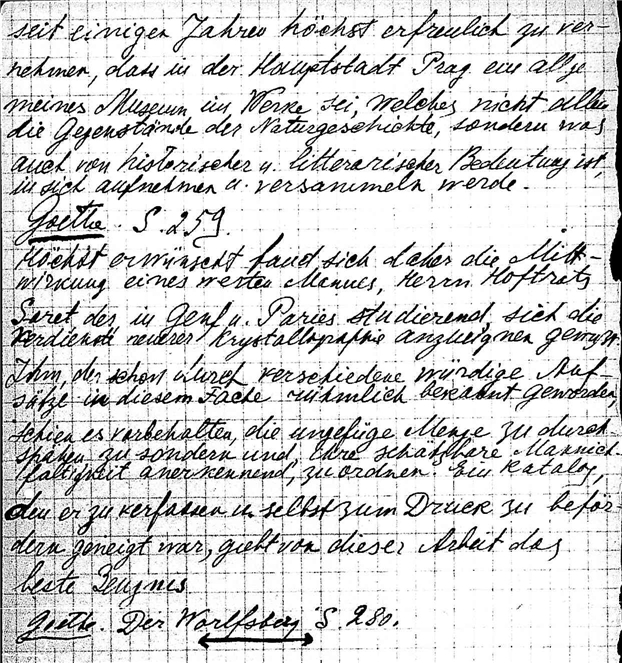 seit einigen Jahren höchst erfreulich zu ver-
nehmen, dass in der Hauptstadt Prag ein allge
meines Museum im Werke sei, welches nicht allein
die Gegenstände der Naturgeschichte, sondern was
auch von historischer u. litterarischer Bedeutung ist,
in sich aufnehmen u. versammeln werde.
Goethe. S. 259.
Höchst erwünscht fand sich daher die Mitt-
wirkung eines werten Mannes, Herrn Hoftrats
Soret des in Genf u. Paries studierend, sich die
Verdienste neuerer Krystallographie anzueignen
Ihm, der schon durch verschiedene würdige Auf-
sätze in diesem Fache rühmlich bekannt geworden,
schien es vorbehalten, die ungefüge Menge zu durch-
spähen, zu sondern und, ihre schätzbare Mannich-
faltigkeit anerkennend, zu ordnen. Ein Katalog,
den er zu verfassen u. selbst zum Druck zu beför-
dern geneigt war, giebt von dieser Arbeit das
beste Zeugnis
Goethe. Der Worlfsberg S. 280.